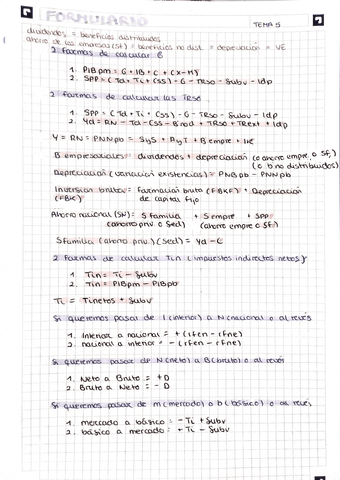 FORMULARIO
TEMA 5
dividendos = beneficios distribuidos
ahorro de las empresas (Sf) = beneficios no dist. = depreciación + VE
2 formas de calcular G
1. PIBpm = G + IB + C + (X-M)
2. SPP = (Td + Ti + CSS) - G - TRSO - Subv - Idp
2 formas de calcular las TRSO
1. SPP = (Td + Ti + CSS) - G - TRSO - Subv - Idp
2. Yd = RN - Td - CSS - Bnod + TRSO + TRext + Idp
Y = RN = PNNpb = SyS + AyI + B empre + IE
B empresariales = dividendos + depreciación (o ahorro empre o Sf)
(o b no distribuidos)
Depreciación (variación existencias) = PNBpb - PNNpb
Inversión bruta = Formación bruta (FBKF) + Depreciación
(FBK) de capital fijo
Ahorro nacional (SN) = S familia + S empre + SPP
(ahorro priv o Sed) (ahorro empre o Sf)
S familia (ahorro priv.) (Sed) = Yd - C
2 formas de calcular Tin (impuestos indirectos netos)
1. Tin = Ti - Subv
2. Tin = PIBpm - PIBpb
Ti = Tinetos + Subv
Si queremos pasar de I (interior) a N (nacional) o al revés
1. Interior a nacional = + (rfen - rfne)
2. nacional a interior = - (rfen - rfne)
Si queremos pasar de N (neto) a B (bruto) o al revés
1. Neto a Bruto = + D
2. Bruto a Neto = - D
Si queremos pasar de m (mercado) a b (básico) o al revés
1. mercado a básico = - Ti + Subv
2. básico a mercado = + Ti - Subv